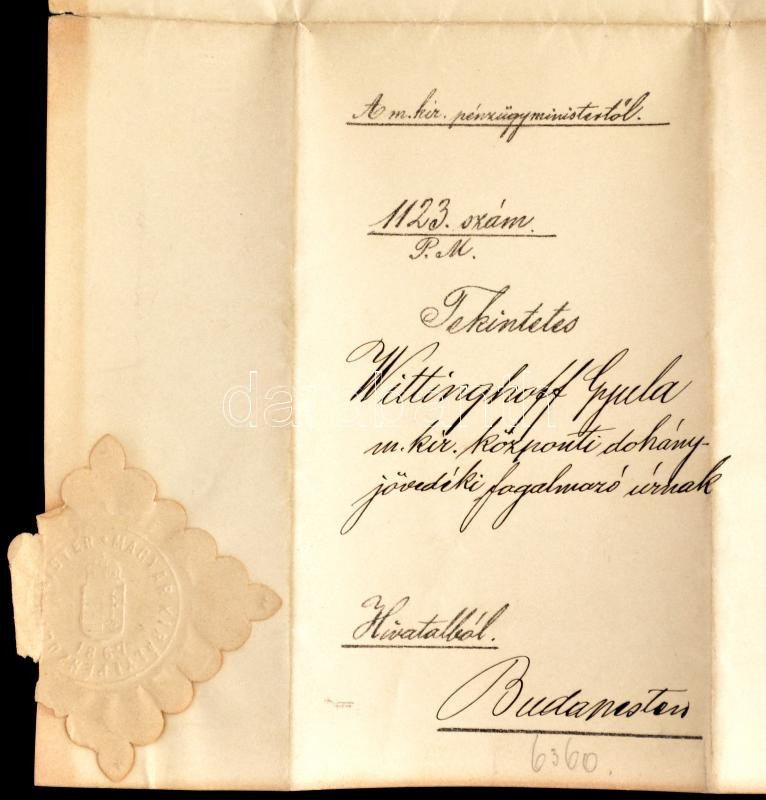 A m. kir. pénzügyministertől.
1123. szám.
P. M.
Tekintetes
Wittinghoff Gyula
m. kir. központi dohány-
jövedéki fogalmazó úrnak
Hivatalból.
Budapesten
6360.
darabanth
MAGYAR KIRÁLYI PÉNZÜGY
1867